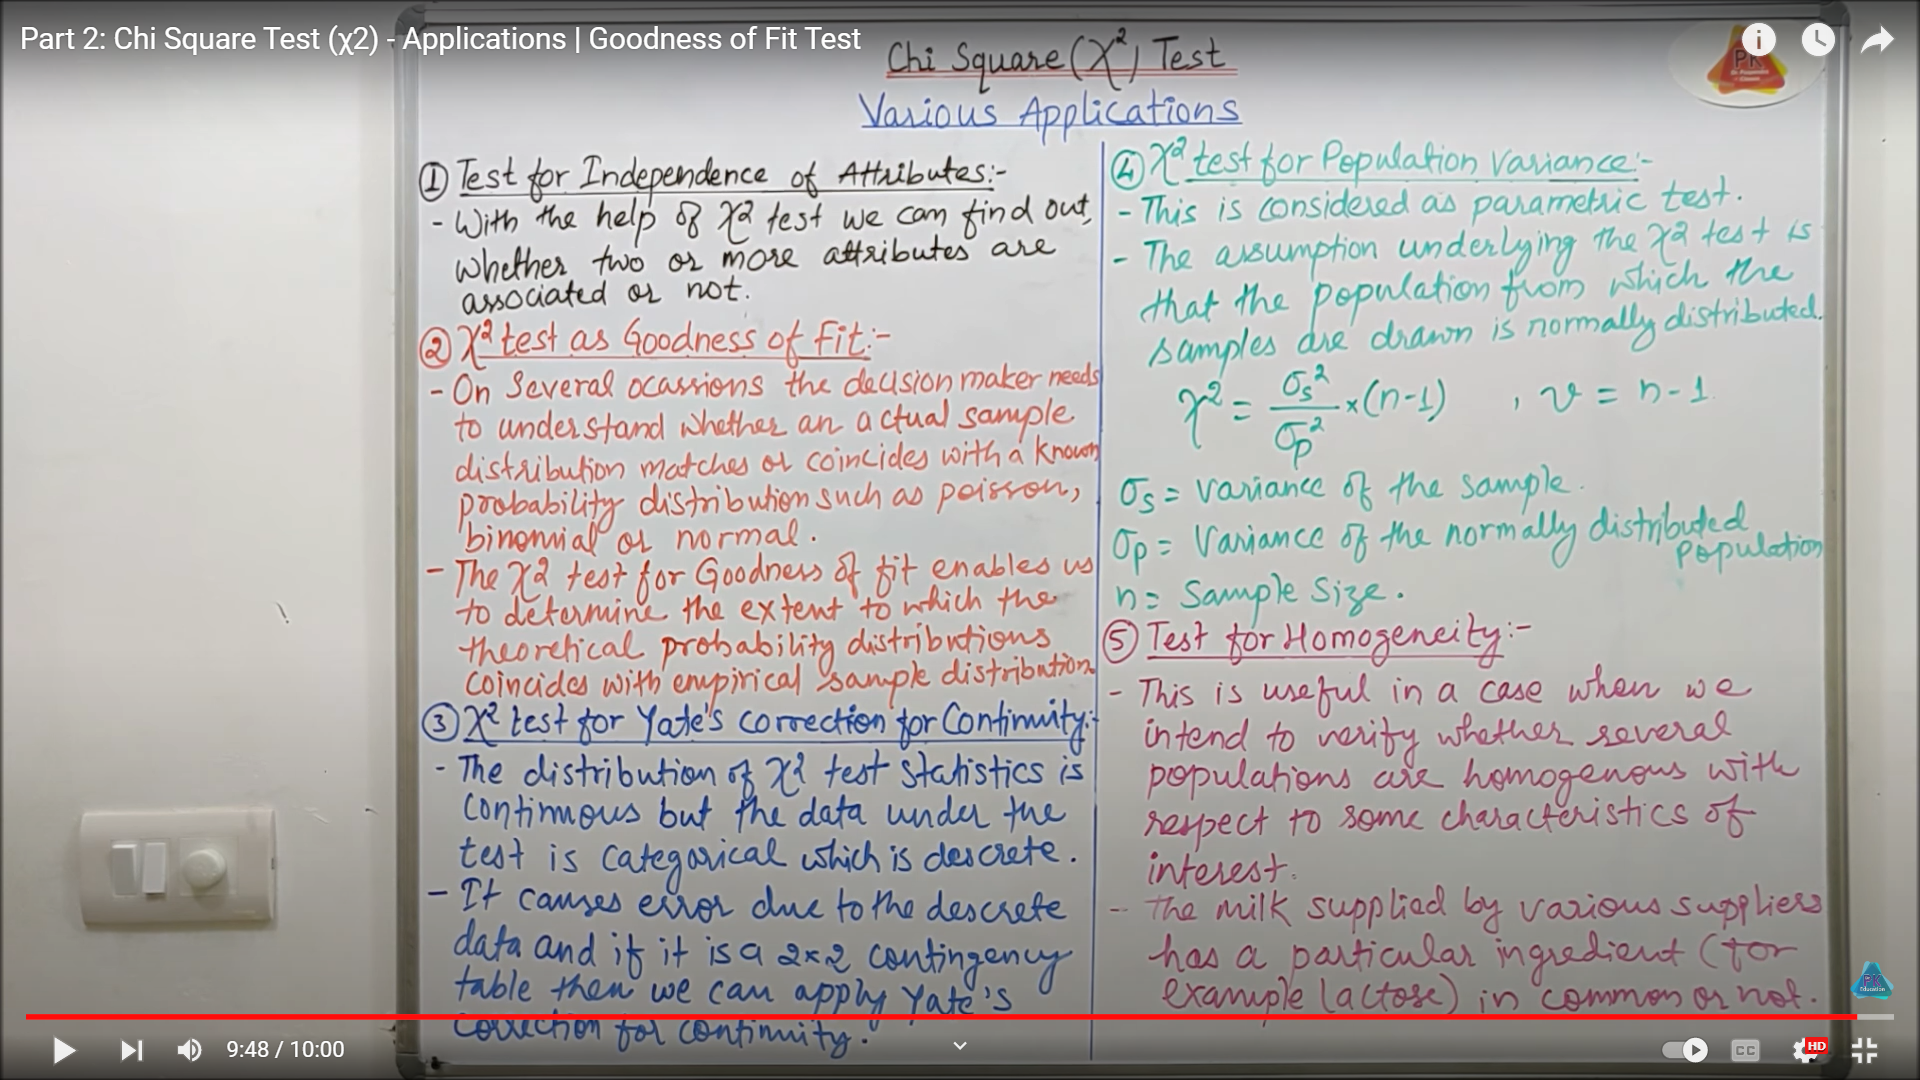 Part 2: Chi Square Test (χ2) - Applications | Goodness of Fit Test
PK
Chi Square (χ²) Test
Various Applications
① Test for Independence of Attributes:-
- With the help of χ2 test we can find out,
whether two or more attributes are
associated or not.
② χ² test as Goodness of Fit:-
- On Several ocassions the decision maker needs
to understand whether an actual sample
distribution matches or coincides with a known
probability distribution such as poisson,
binomial or normal.
- The χ2 test for Goodness of fit enables us
to determine the extent to which the
theoretical probability distributions
coincides with empirical sample distribution
③ χ² test for Yate's correction for Continuity:-
- The distribution of χ² test Statistics is
continuous but the data under the
test is categorical which is descrete.
- It causes error due to the descrete
data and if it is a 2×2 contingency
table then we can apply Yate's
correction for continuity.
④ χ² test for Population Variance:-
- This is considered as parametric test.
- The assumption underlying the χ2 test is
that the population from which the
samples are drawn is normally distributed.
χ² = σs²/σp² × (n-1) , ν = n-1.
σs = variance of the sample.
σp = Variance of the normally distributed
population
n = Sample Size.
⑤ Test for Homogeneity:-
- This is useful in a case when we
intend to verify whether several
populations are homogenous with
respect to some characteristics of
interest.
- The milk supplied by various suppliers
has a particular ingredient (for
example lactose) in common or not.
PK
Education
9:48 / 10:00
CC
HD